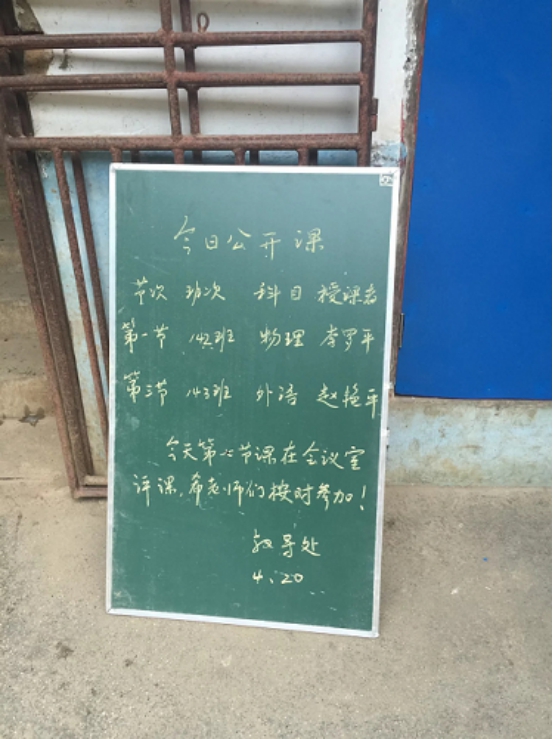 今日公开课
节次 班次 科目 授课者
第一节 142班 物理 李罗平
第三节 143班 外语 赵艳平
今天第七节课在会议室
评课,希老师们按时参加!
教导处
4、20